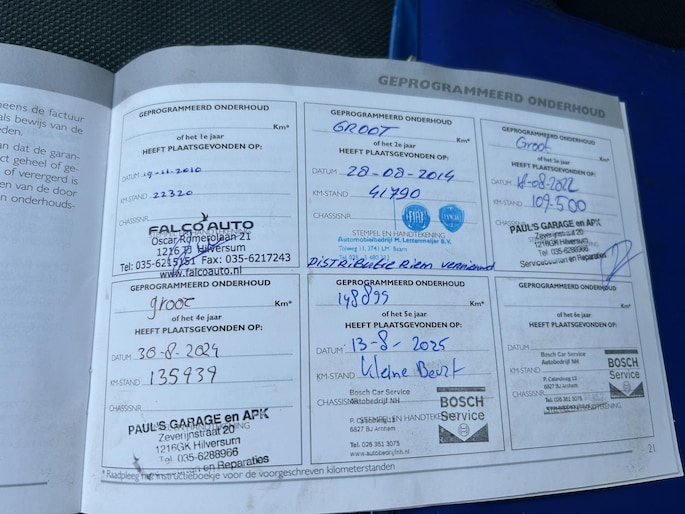 eens de factuur
als bewijs van de
an dat de garan-
ct geheel of ge-
of verergerd is
en van de door
n onderhouds-
GEPROGRAMMEERD ONDERHOUD
GEPROGRAMMEERD ONDERHOUD
Km*
of het 1e jaar
HEEFT PLAATSGEVONDEN OP:
DATUM 19-11-2010
KM-STAND 22320
CHASSISNR
FALCO AUTO
Oscar Romerolaan 21
1216 Hilversum
Tel: 035-6215151 Fax: 035-6217243
www.falcoauto.nl
GEPROGRAMMEERD ONDERHOUD
GROOT
Km*
of het 2e jaar
HEEFT PLAATSGEVONDEN OP:
DATUM 28-08-2014
KM-STAND 41790
CHASSISNR
FIAT
STEMPEL EN HANDTEKENING
Automobielbedrijf M. Lattenmeijer B.V.
Tolweg 11, 3741 LM Baarn
DISTRIBUTIE Riem vernieuwd
GEPROGRAMMEERD ONDERHOUD
Groot
Km*
of het 3e jaar
HEEFT PLAATSGEVONDEN OP:
DATUM 18-08-2022
KM-STAND 109.500
CHASSISNR
PAUL'S GARAGE en APK
Zeverijnstraat 20
1216GK Hilversum
Tel. 035-6288966
Servicebeurten en Reparaties
GEPROGRAMMEERD ONDERHOUD
groot
Km*
of het 4e jaar
HEEFT PLAATSGEVONDEN OP:
DATUM 30-8-2024
KM-STAND 135939
CHASSISNR
PAUL'S GARAGE en APK
Zeverijnstraat 20
1216GK Hilversum
Tel. 035-6288966
en Reparaties
GEPROGRAMMEERD ONDERHOUD
148899
Km*
of het 5e jaar
HEEFT PLAATSGEVONDEN OP:
DATUM 13-8-2025
KM-STAND Kleine Beurt
Bosch Car Service
CHASSISNR Autobedrijf NH
STEMPEL EN HANDTEKENING
6827 BJ Arnhem
Tel. 026 361 3075
www.autobedrijfnh.nl
BOSCH
Service
GEPROGRAMMEERD ONDERHOUD
Km*
of het 6e jaar
HEEFT PLAATSGEVONDEN OP:
DATUM
Bosch Car Service
Autobedrijf NH
KM-STAND
6827 BJ Arnhem
CHASSISNR
Tel. 026 361 3075
BOSCH
Service
* Raadpleeg het instructieboekje voor de voorgeschreven kilometerstanden
21